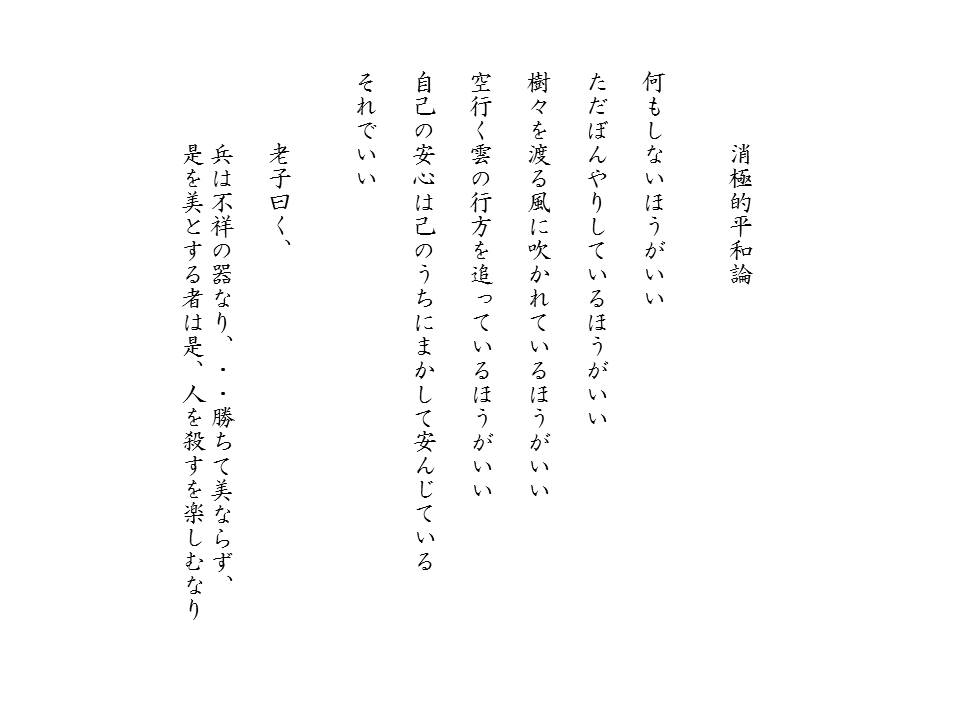 消極的平和論
何もしないほうがいい
ただぼんやりしているほうがいい
樹々を渡る風に吹かれているほうがいい
空行く雲の行方を追っているほうがいい
自己の安心は己のうちにまかして安んじている
それでいい
老子曰く、
兵は不祥の器なり、・・勝ちて美ならず、
是を美とする者は是、人を殺すを楽しむなり